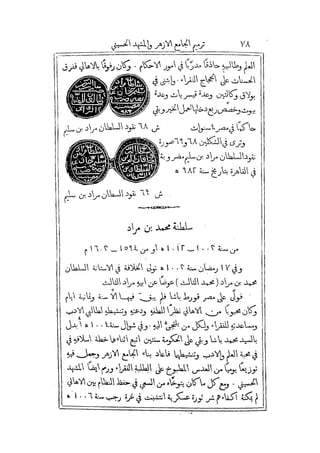 ٧٨ ترميم الجامع الازهر والمشهد الحسيني
العلم وطالبيهِ حاذقًا مدرّبًا في امور الاحكام . وكان رفوقًا بالاهالي ففرق
الحسنات على الحجاج الفقراء . وابتنى في
بولاق وكالتين وعدة قيسريات وعدة
بيوت وخصّص ريع دخلها لعمل الخير وبقي
حاكمًا في مصر ٤ سنوات
ش ٦٨ نقود السلطان مراد بن سليم
وترى في الشكلين ٦٨ و٦٩ صورة
نقود السلطان مراد بن سليم مضروبة
في القاهرة بتاريخ سنة ٩٨٢ هـ
ش ٦٩ نقود السلطان مراد بن سليم
سلطنة محمد بن مراد
من سنة ١٠٠٣ – ١٠١٢ هـ او من ١٥٩٤ – ١٦٠٣ م
وفي ١٧ رمضان سنة ١٠٠٣ هـ تولى الخلافة في الاستانة السلطان
محمد بن مراد ( محمد الثالث ) عوضًا عن ابيهِ مراد الثالث
فولَّى على مصر قورط باشا فلم يبقَ فيها الا سنة وثمانية ايام
وكان محبوبًا من الاهالي نظرًا للطفهِ ودعتهِ وتنشيطهِ لطالبي الادب
ومساعدتهِ للفقراء ولكل من التجئ اليهِ . وفي شوال سنة ١٠٠٤ هـ أُبدل
بالسيد محمد باشا وبقي على الحكومة سنتين اتبع اثناءهما خطة اسلافهِ في
محبة العلم والادب وتنشيطهما فاعاد بناء الجامع الازهر وجعل فيهِ
توزيعًا يوميًا من العدس المطبوخ على الطلبة الفقراء ورمم ايضًا المشهد
الحسيني . ومع كل ما كان يتوخاه من السعي في حفظ النظام بين الاهالي
لم يمكنهُ اكفاءهم شر ثورة عسكرية انتشبت في غرة رجب سنة ١٠٠٦ هـ